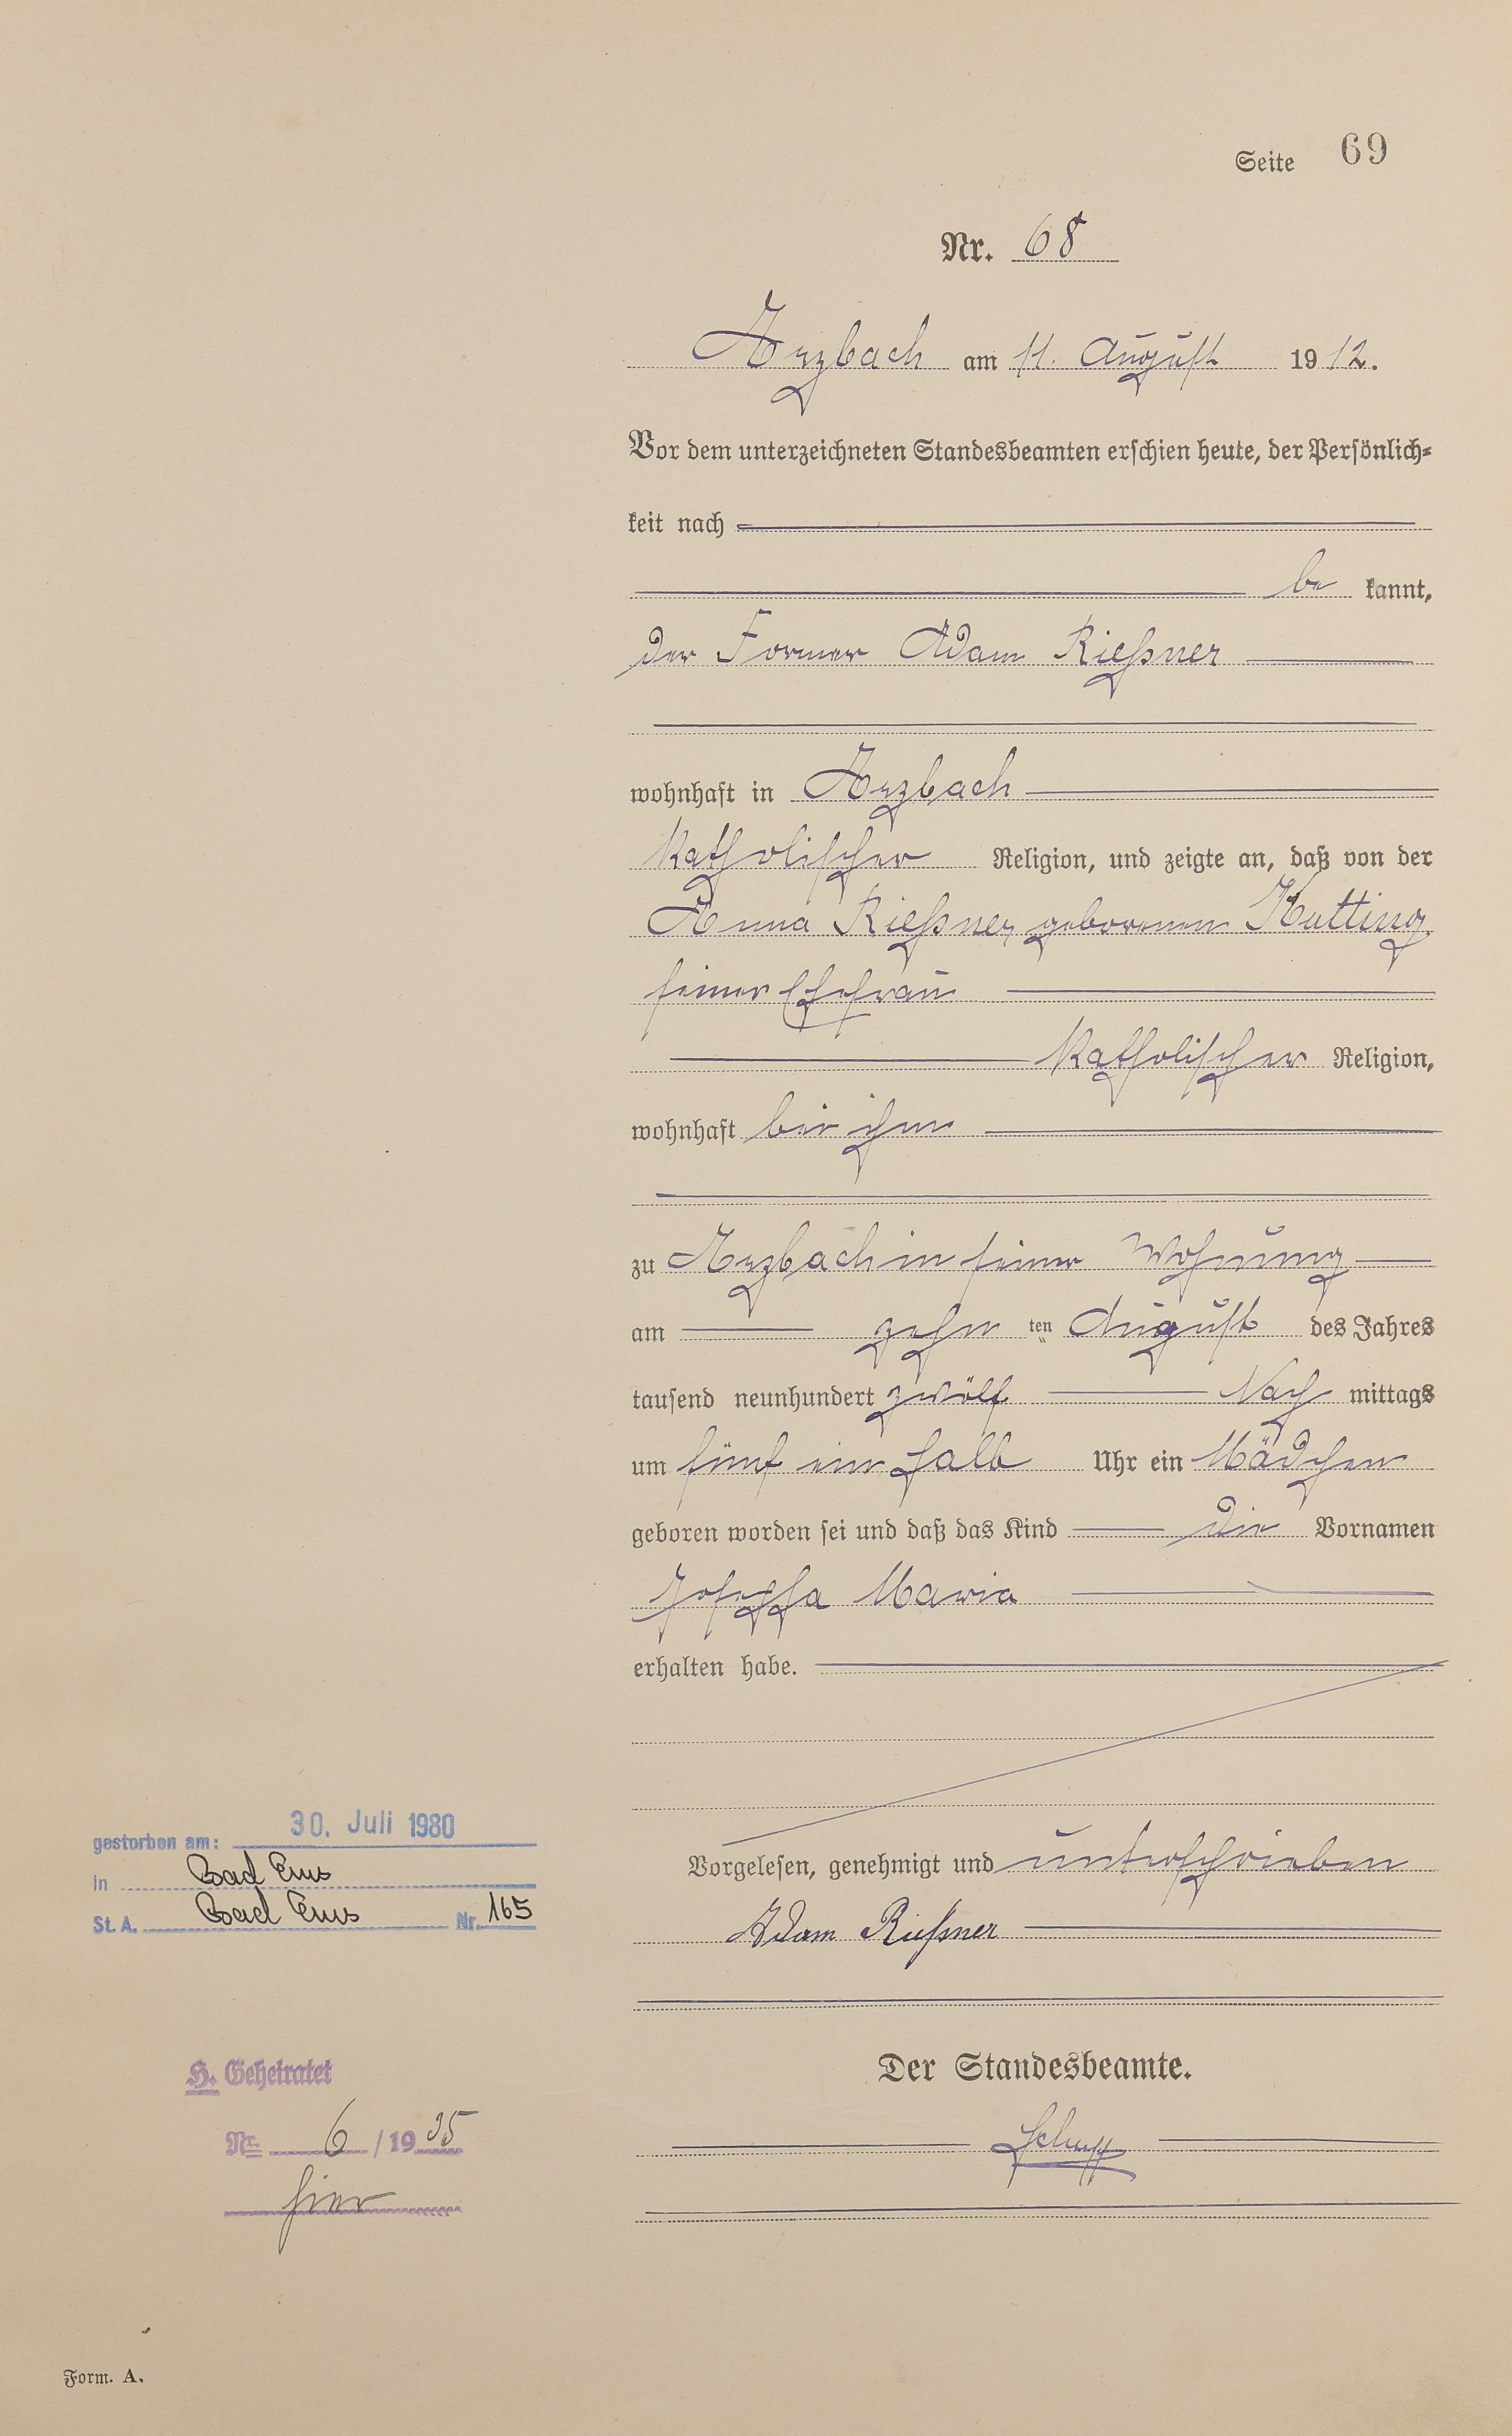 Seite 69
Nr. 68
Arzbach am 11. August 1912.
Vor dem unterzeichneten Standesbeamten erschien heute, der Persönlich-
keit nach
be kannt,
der Former Adam Rießner
wohnhaft in Arzbach
katholischer Religion, und zeigte an, daß von der
Anna Rießner, geborenen Hutting
seiner Ehefrau
katholischer Religion,
wohnhaft bei ihm
zu Arzbach in seiner Wohnung
am zehn ten August des Jahres
tausend neunhundert zwölf Nach mittags
um fünf ein halb Uhr ein Mädchen
geboren worden sei und daß das Kind die Vornamen
Josepha Maria
erhalten habe.
Vorgelesen, genehmigt und unterschrieben
Adam Rießner
Der Standesbeamte.
Schupp
gestorben am: 30. Juli 1980
in Bad Ems
St. A. Bad Ems Nr. 165
H. Geheiratet
Nr. 6 / 19 35
hier
Form. A.